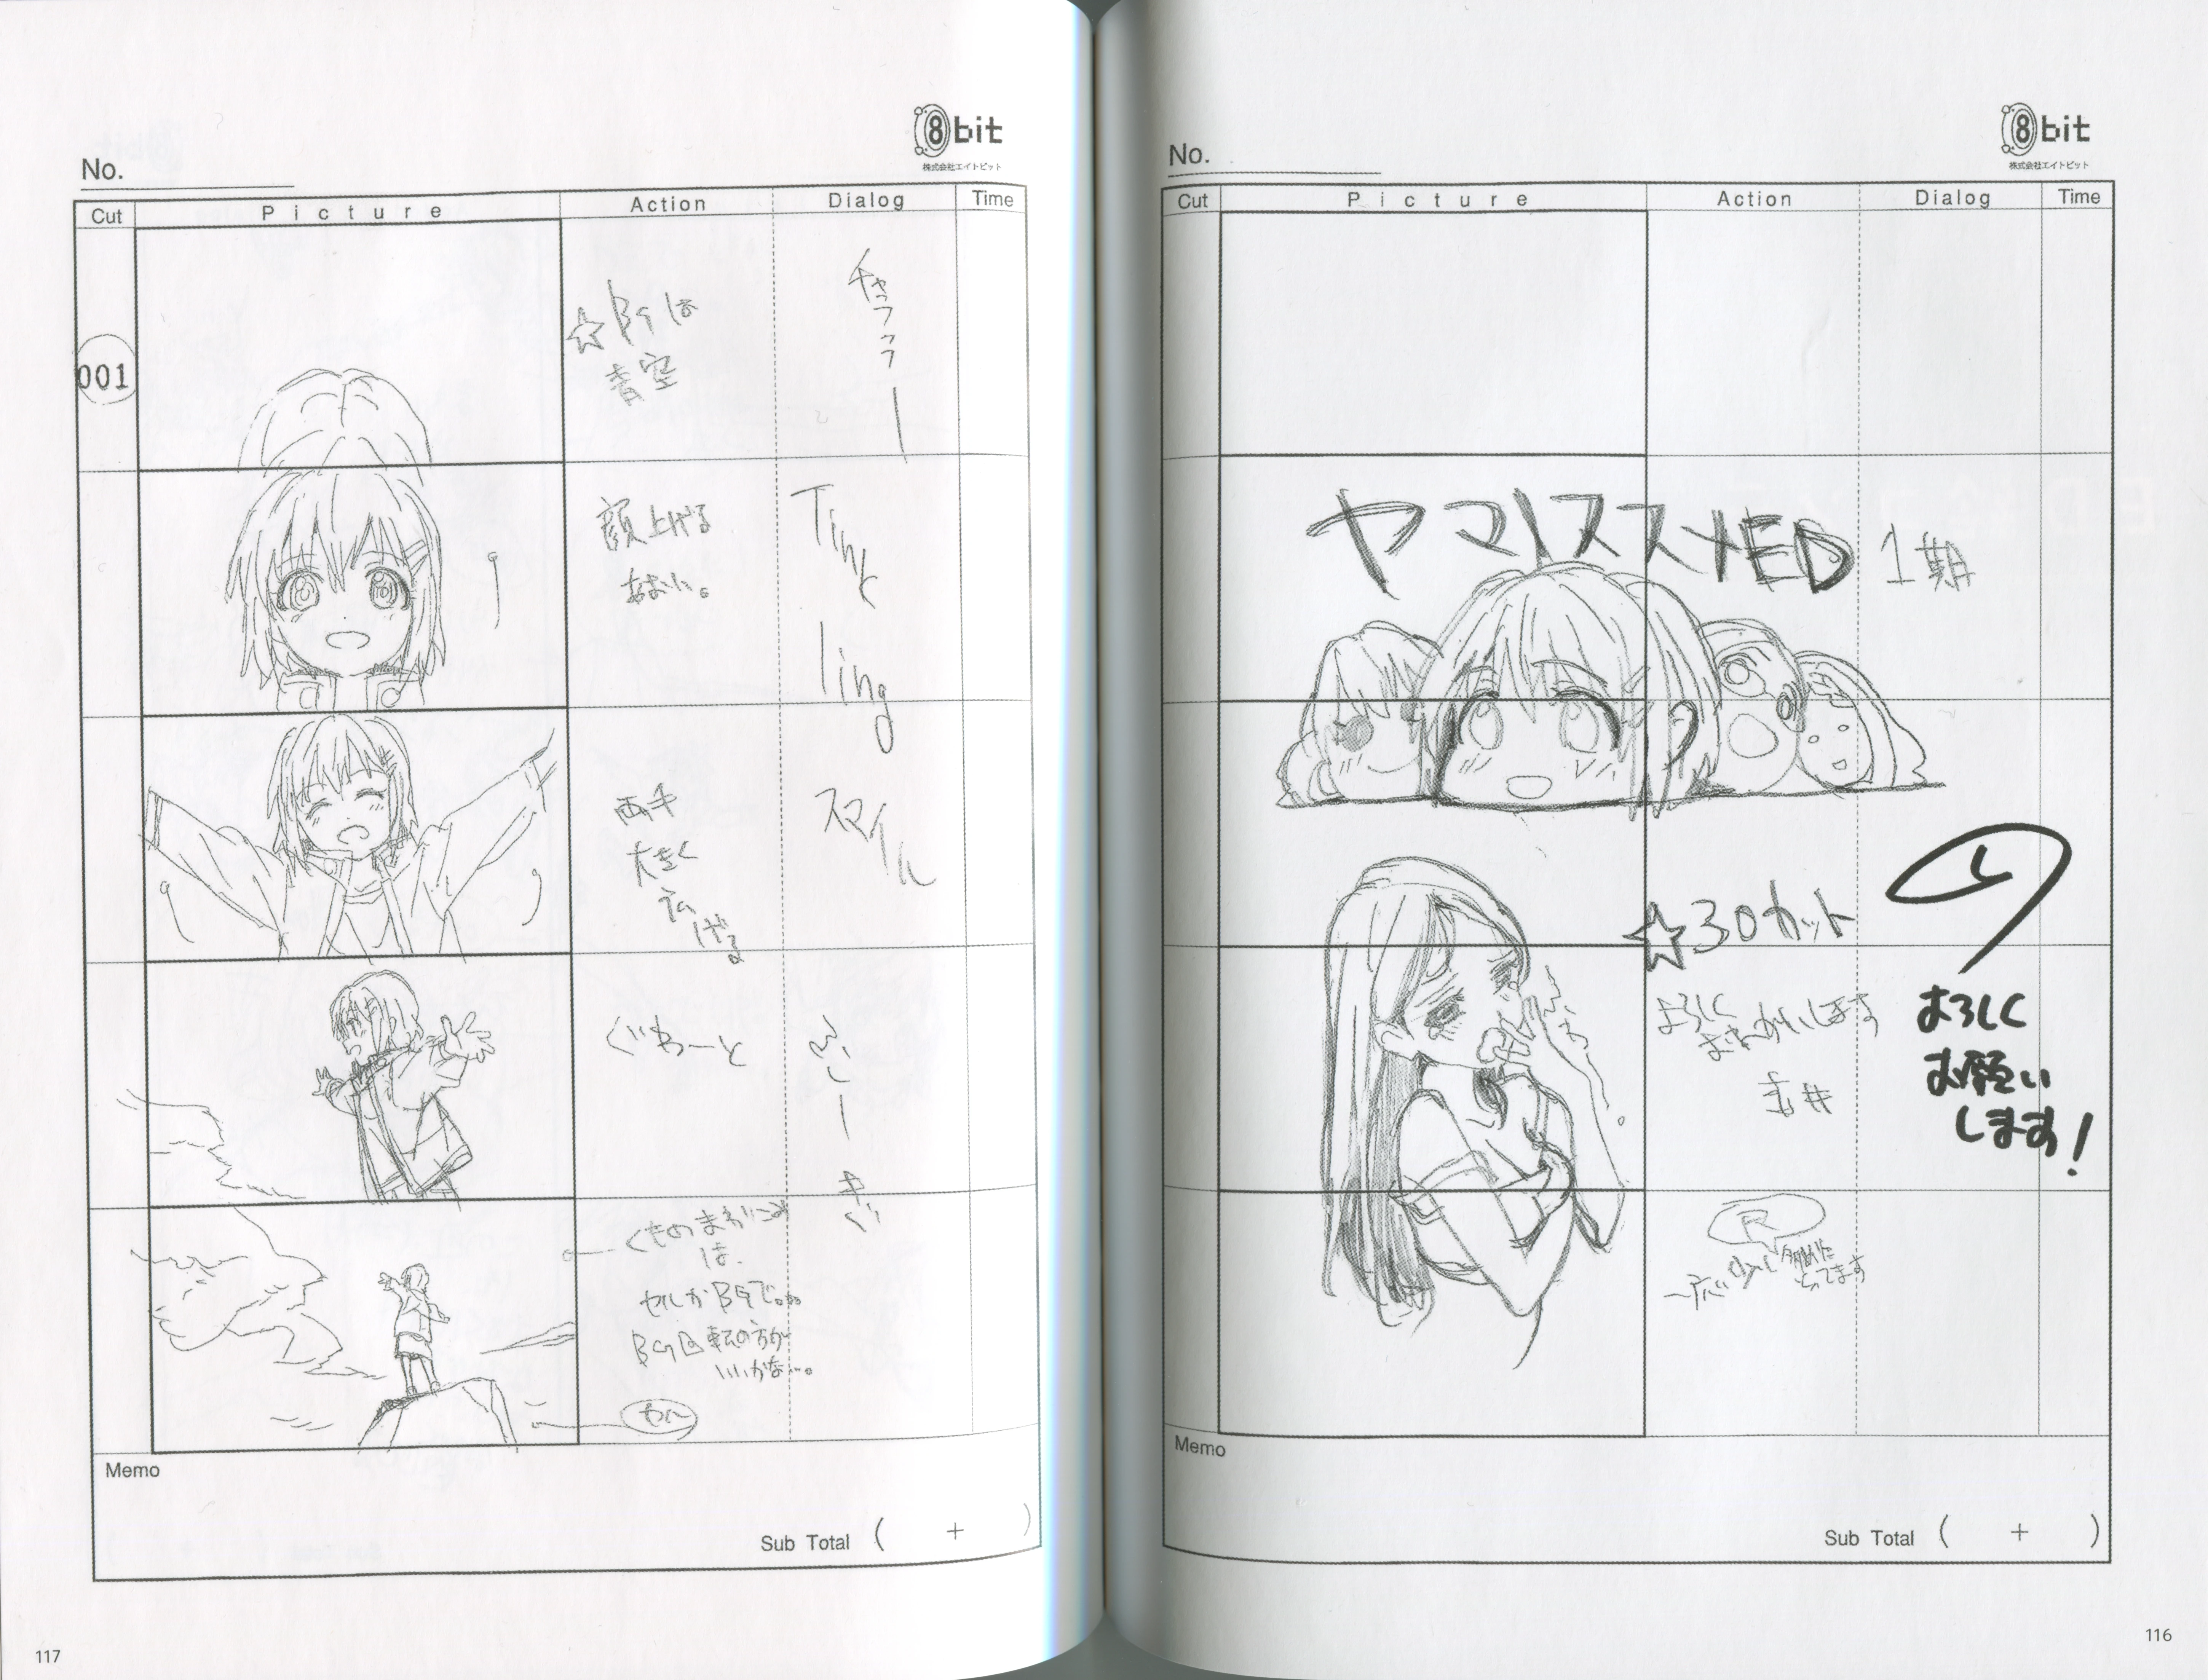 8bit
株式会社エイトビット
No.
Cut
Picture
Action
Dialog
Time
ヤマノススメED 1期
☆30カット
よろしく
おねがいします
よろしく
お願い
します!
R
Memo
Sub Total ( + )
116
8bit
株式会社エイトビット
No.
Cut
Picture
Action
Dialog
Time
001
☆BGは
青空
顔上げる
あおい。
Tink
ling
両手
大きく
広
げる
スマイル
ぐわーっと
くものまわりこみ
は
セルかBGで。
BG回転の方が
いいかな…。
Memo
Sub Total ( + )
117